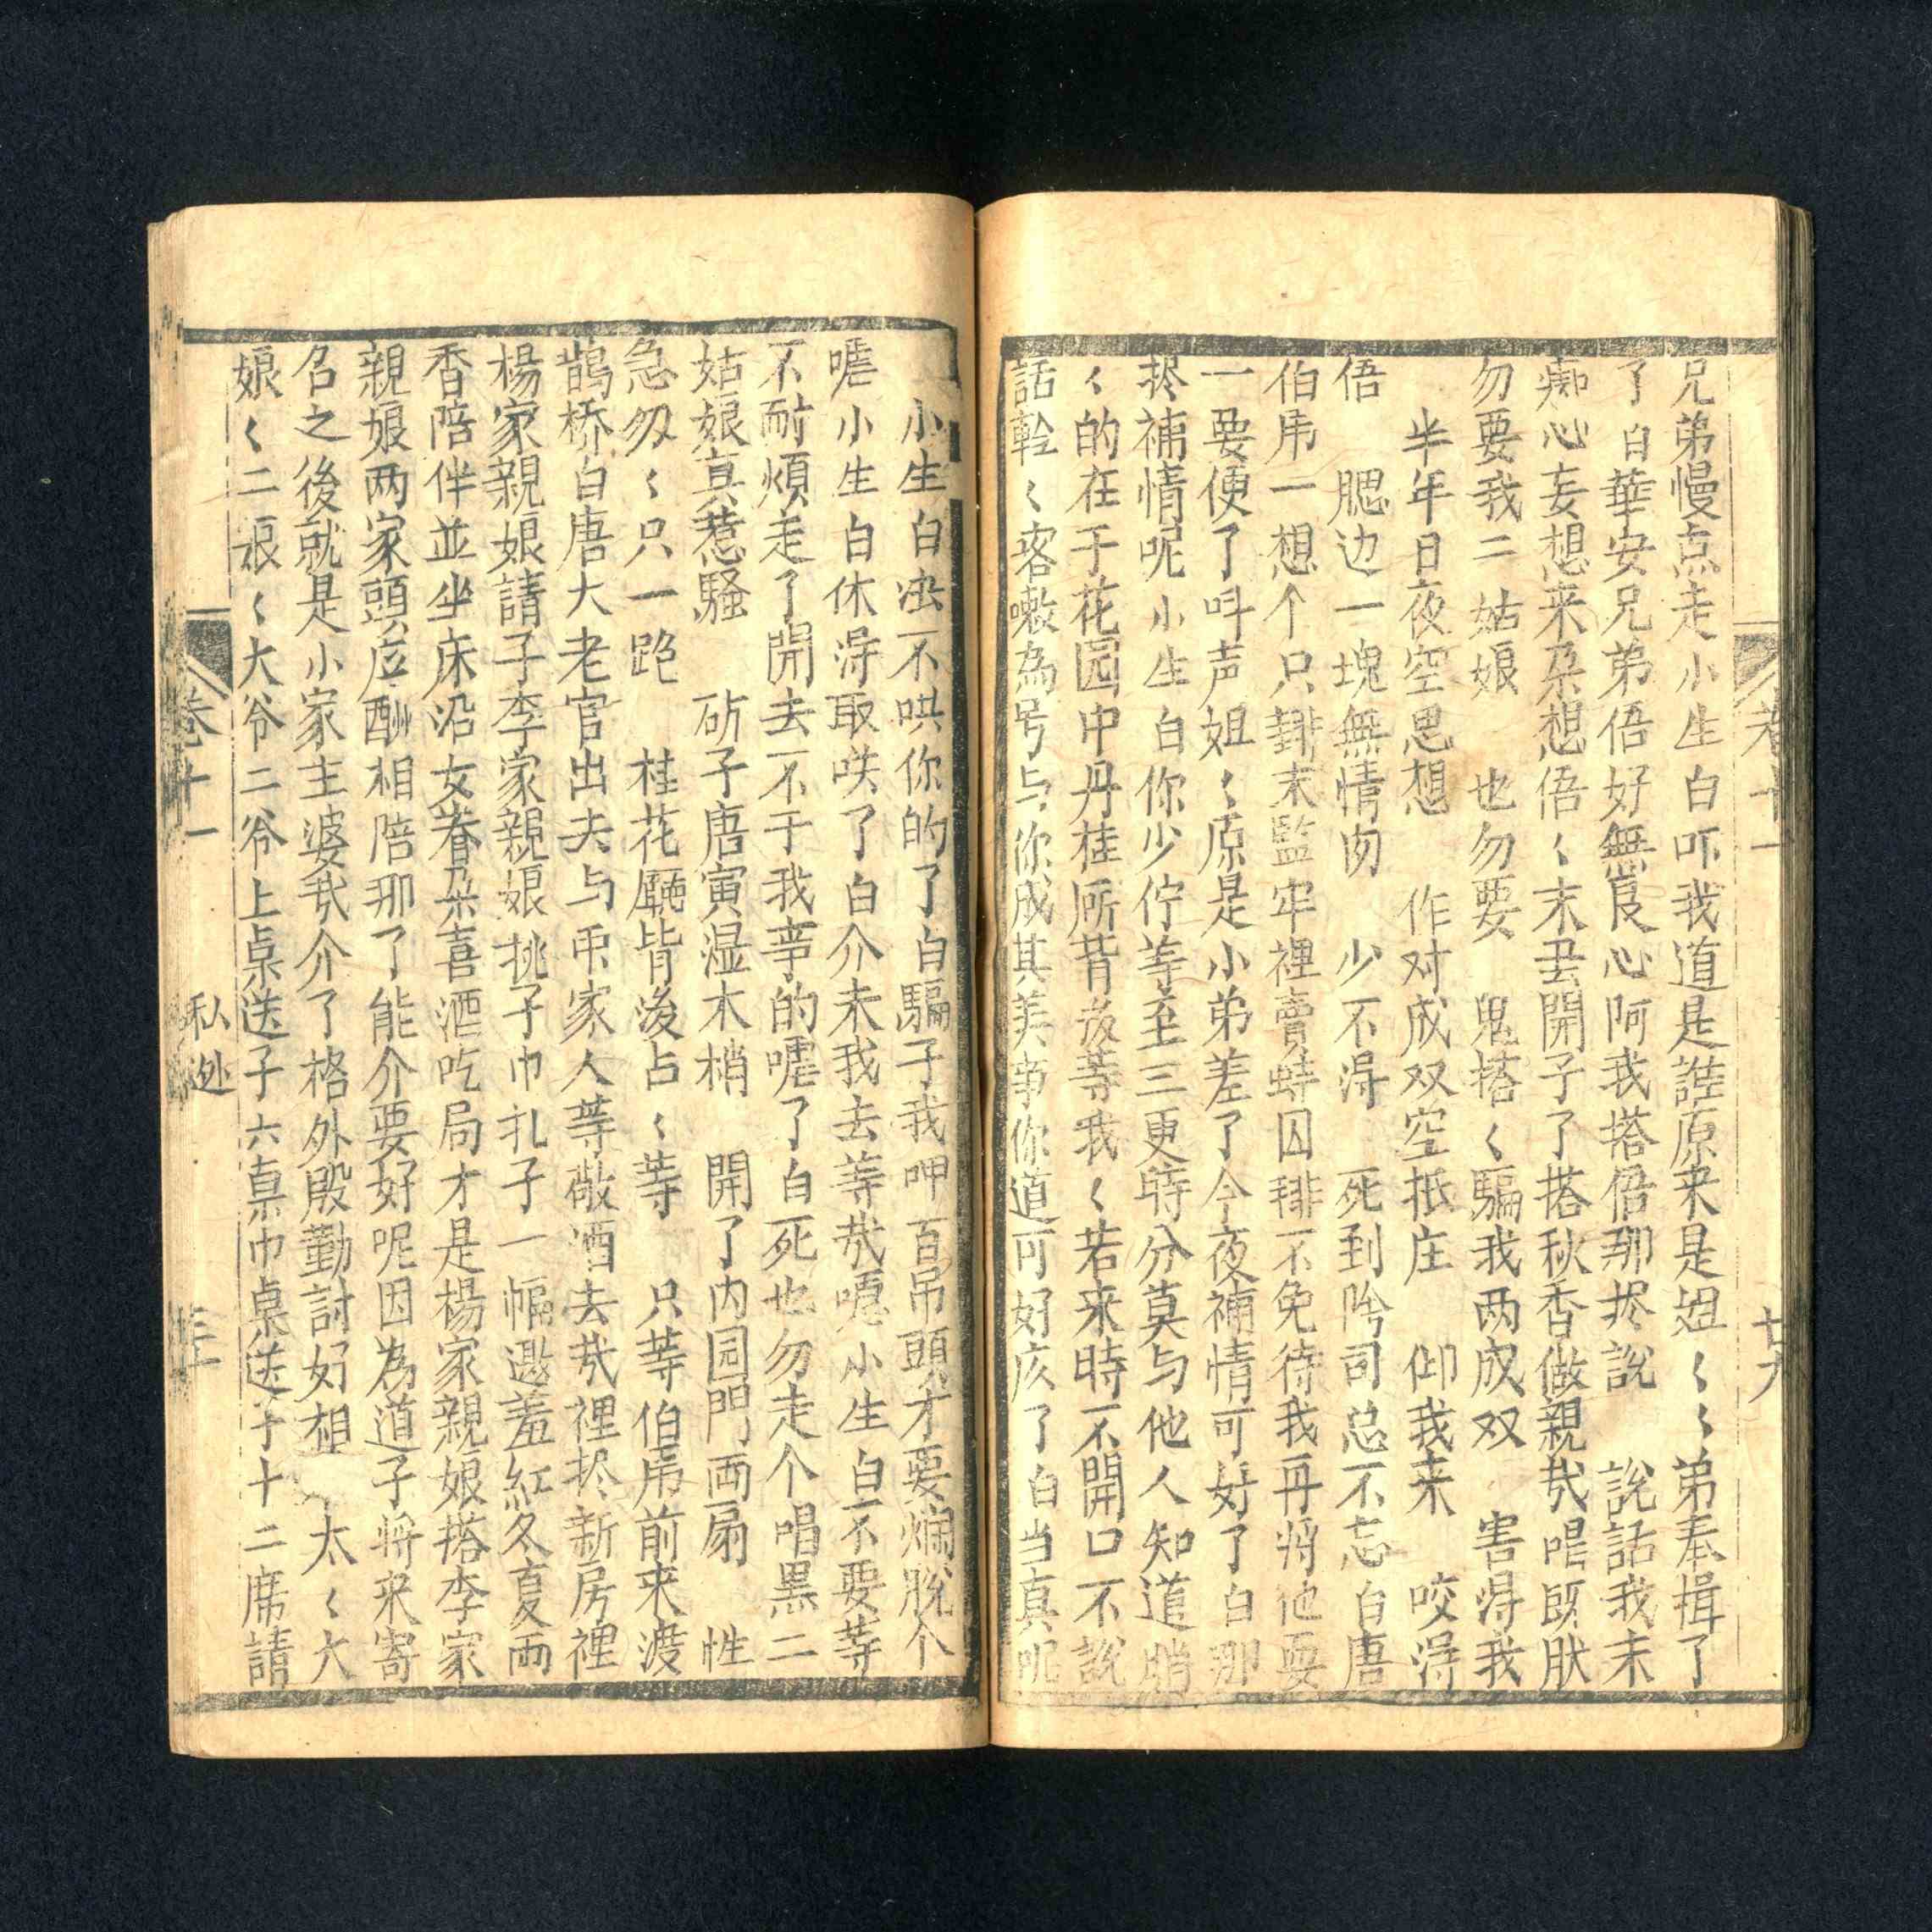 兄弟慢点走小生白吓我道是誰原来是姐〻〻弟奉揖了
了白華安兄弟俉好無良心阿我搭俉那挀説　説話我末
痴心妄想来朶想俉〻末丟開子了搭秋香做親㢤唱既肰
勿要我二姑娘　也勿要　鬼搭〻騙我两成双　害淂我
半年日夜空思想　作对成双空抵庄　仰我来　咬淂
俉　腮边一塊無情肉　少不淂　死到吟司总不忘白唐
伯虎一想个只　末監牢裡賣　囚　不免待我再将他耍
一耍便了呌声姐〻原是小弟差了今夜補情可好了白那
挀補情呢小生白你少佇等至三更時分莫与他人知道
〻的在于花园中丹桂㕔背後等我〻若来時不開口不説
話乾〻咳嗽為号与你成其美事你道可好広了白当真呢
小生白决不哄你的了白騙子我呷百吊頭才要爛脫个
嘘小生白休淂取笑了白介末我去等㢤嘘小生白不要等
不耐煩走了開去不干我亊的嘘了白死也勿走个唱黒二
姑娘真惹騷　斫子唐寅湿木梢　開了内园門両扇　性
急刅〻只一跑　桂花廳背後占〻等　只等伯虎前来渡
鵲桥白唐大老官出去与帀家人等敬酒去㢤裡挀新房裡
楊家親娘請子李家親娘挑子巾扎子一幅遮羞紅冬夏両
香陪伴並坐床沿女眷朶喜酒吃局才是楊家親娘搭李家
親娘两家頭応酬相陪那了能介要好呢因為道子将来寄
名之後就是小家主婆㢤介了格外殷勤討好相　太〻大
娘〻二娘〻大爷二爷上桌送子六桌巾桌送子十二席請
卷十一　私逃　三十
卷十一　廿九